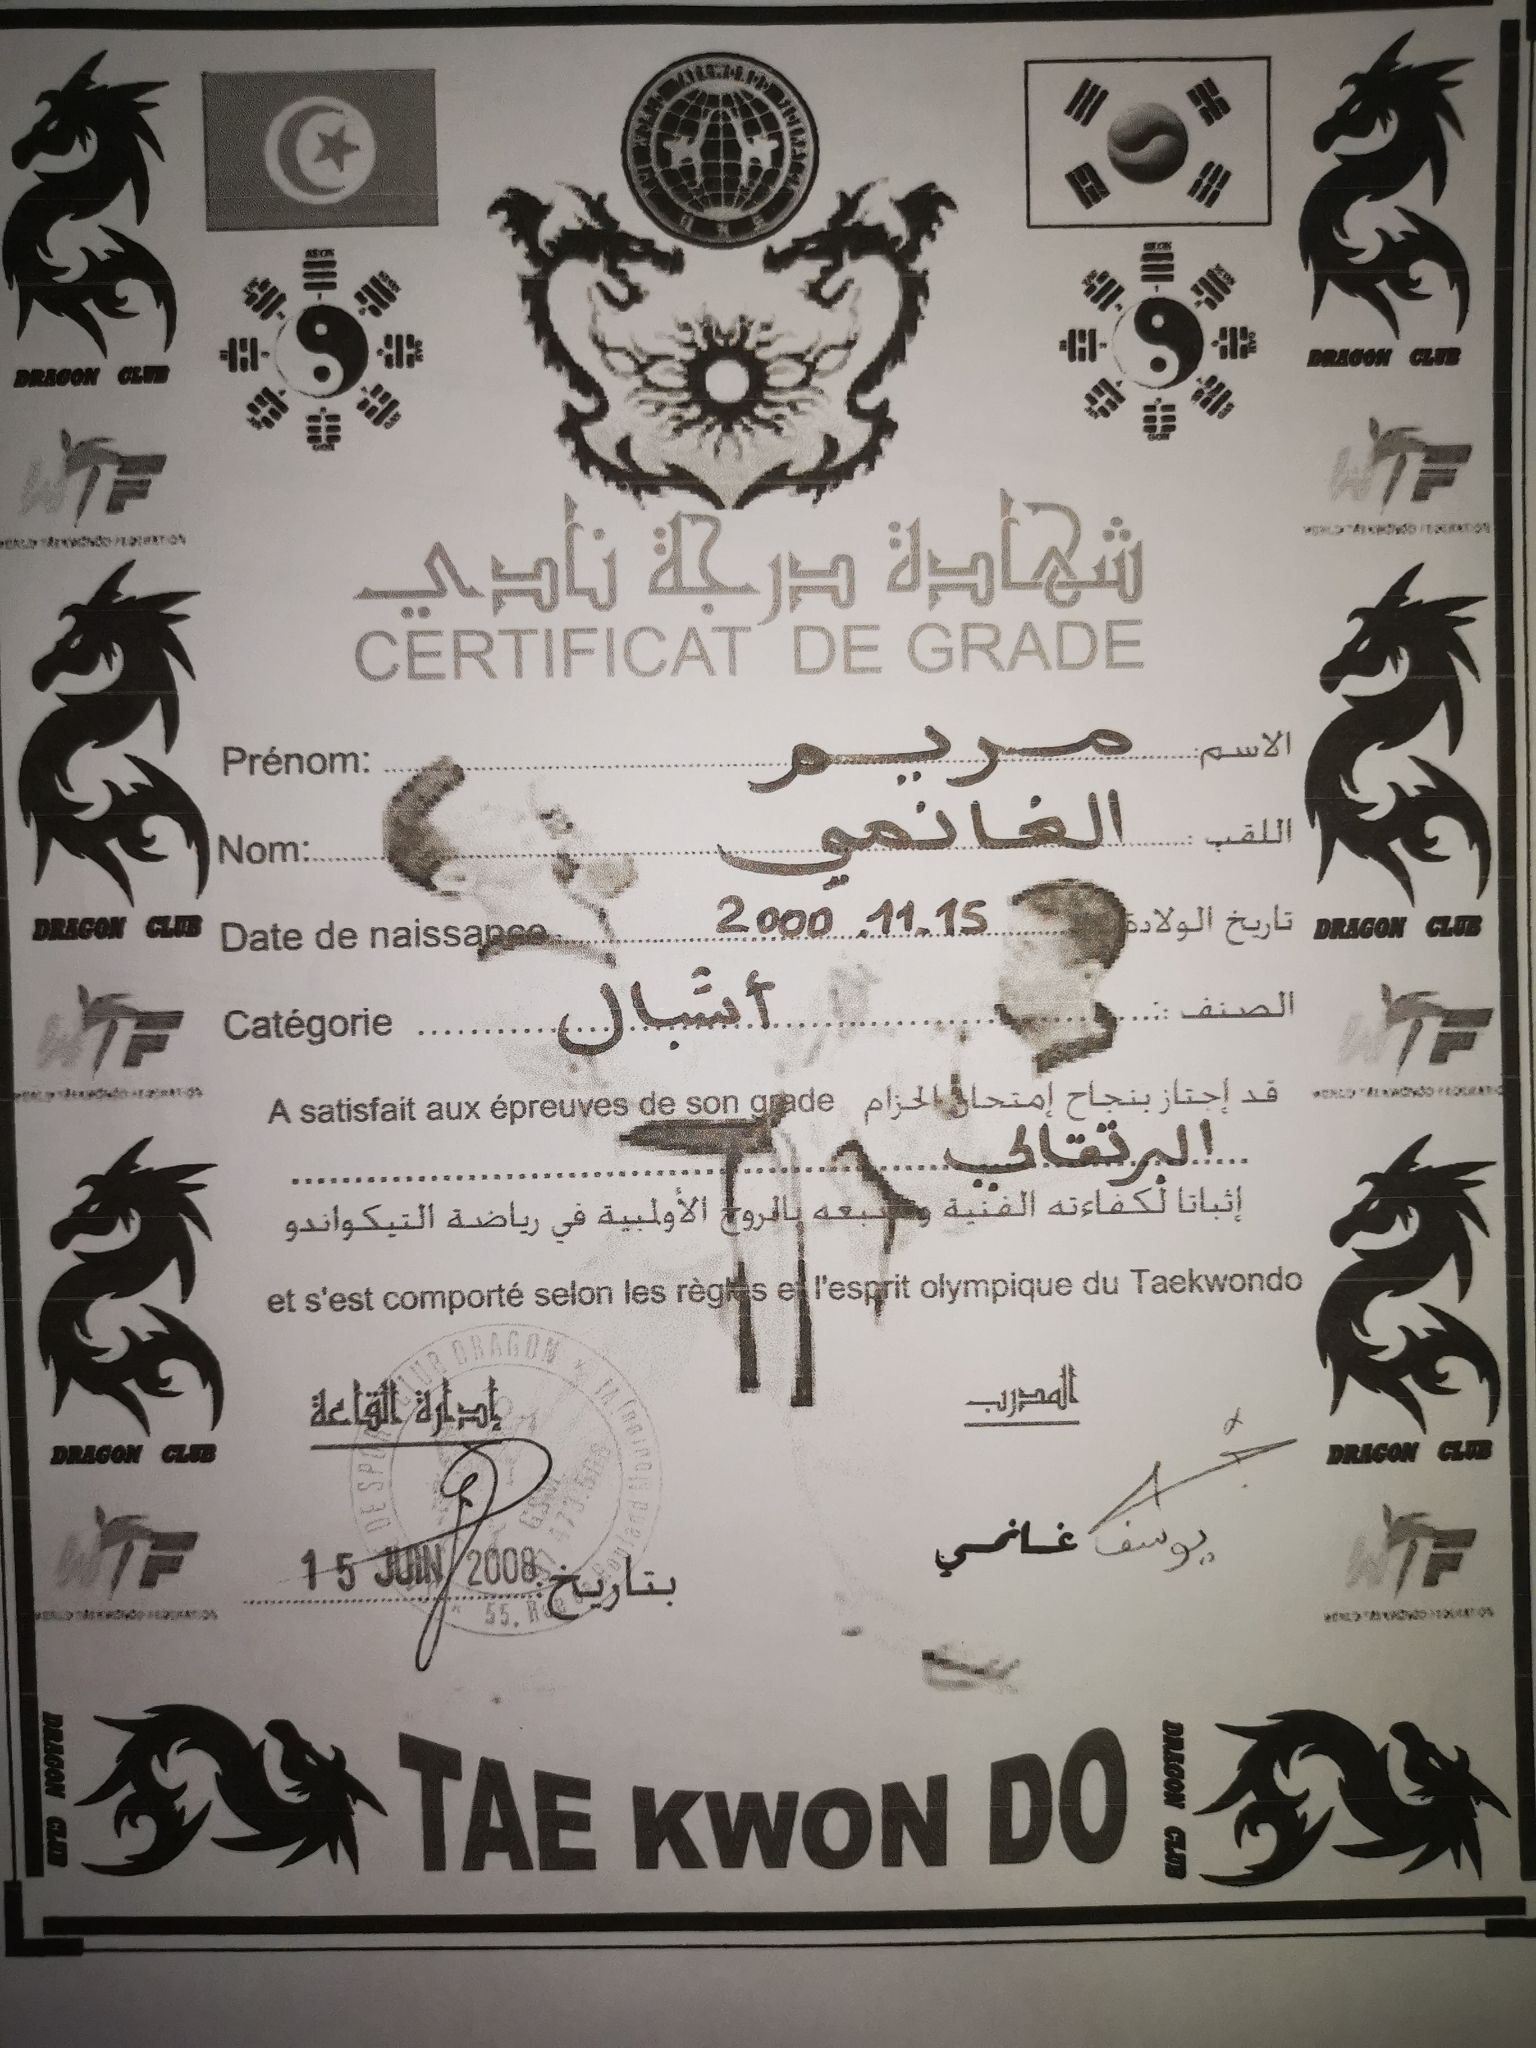 DRAGON CLUB
DRAGON CLUB
WTF
WTF
شهادة درجة نادي
CERTIFICAT DE GRADE
Prénom: مريم الاسم:
Nom: الغانمي اللقب:
DRAGON CLUB
Date de naissance 2000.11.15 تاريخ الولادة
DRAGON CLUB
WTF
Catégorie أشبال الصنف:
WTF
A satisfait aux épreuves de son grade قد إجتاز بنجاح إمتحان الحزام
البرتقالي
إثباتا لكفاءته الفنية بالروح الأولمبية في رياضة التيكواندو
et s'est comporté selon les règles et l'esprit olympique du Taekwondo
CLUB DRAGON
إدارة القاعة
المدرب
DRAGON CLUB
DRAGON CLUB
يوسف غانمي
WTF
WTF
بتاريخ: 15 JUIN 2008
DRAGON CLUB
TAE KWON DO
DRAGON CLUB